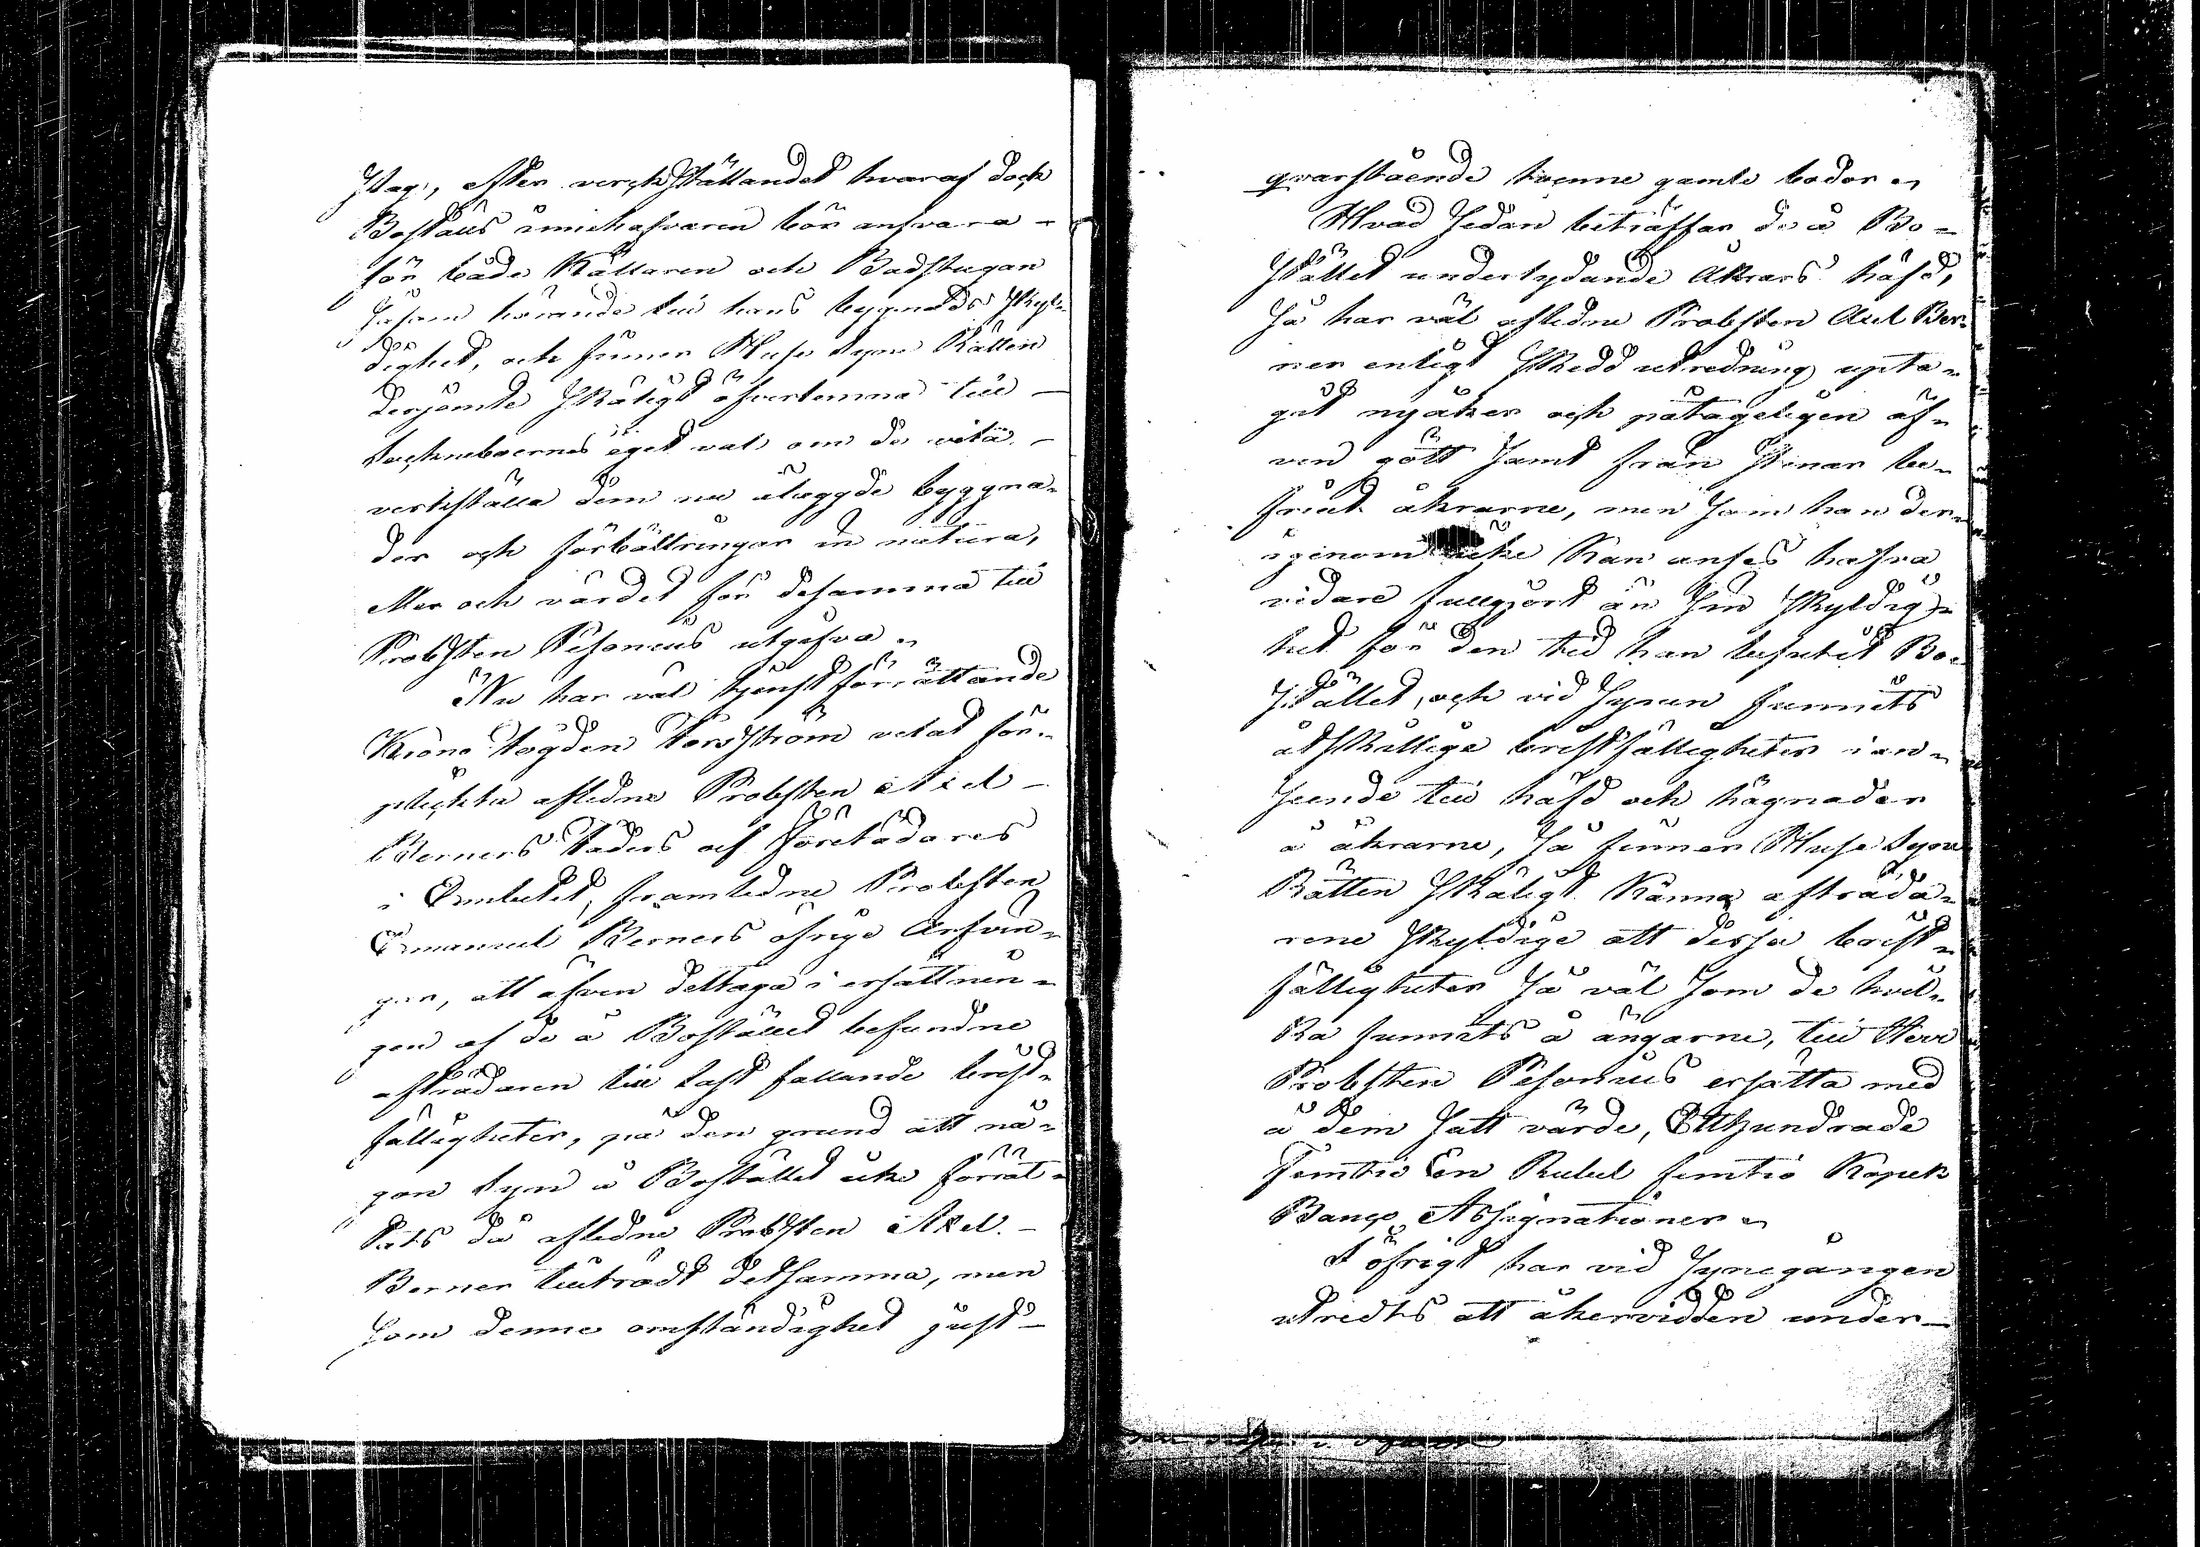 slag, efter verckställandet hvaraf dock
Boställs innehafvaren bör ansvara -
för både Källaren och Badstugan
såsom hörande till hans byggnads skyl-
dighet, och finner Huse Syne Rätten
derjemte skäligt öfverlemna till -
Sockneboernes eget val om de vilja -
verkställa dem nu ålaggde byggna-
der och förbättringar in natura,
eller och värdet för desamma till
Probsten Pesonius utgifva.
Nu har väl tjenstförrättande
Krono Fogden Forsström velat för-
plickta afledne Probsten Axel -
Berners Faders och Företrädares
i Embetet, framledne Probsten
Emanuel Berners öfrige Arfvin-
gar, att äfven deltaga i ersättnin-
gen af de å Bostället befundne
afträdaren till last fallande brist-
fälligheter, på den grund att nå-
gon Syn å Bostället icke förrät-
tats då afledne Probsten Axel -
Berner tillträdt detsamma, men
som denne omständighet just -
qvarstående tvenne gamle bodor.
Hvad sedan beträffar de å Bo-
stället underlydande Åkrars häfd,
så har väl afledne Probsten Axel Ber-
ner enligt skedd utredning upta-
git nyåker och påtageligen äf-
ven gött samt från stenar be-
friat åkrarne, men som han der-
igenom icke kan anses hafva
vidare fullgjort än sin skyldig-
het för den tid han besutit Bo-
stället, och vid Synen funnits
åtskillige bristfälligheter i an-
seende till häfd och hägnader
å åkrarne, så finner Huse Syne
Rätten skäligt känna afträda-
rene skyldige att dessa brist-
fälligheter så väl som de hvil-
ka funnits å ängarne, till Herr
Probsten Pesonius ersätta med
å dem satt värde, Etthundrade
Femtio En Rubel femtio Kopek
Banco Assignationer.
I öfrigt har vid Synegången
utredts att åkervidden under-